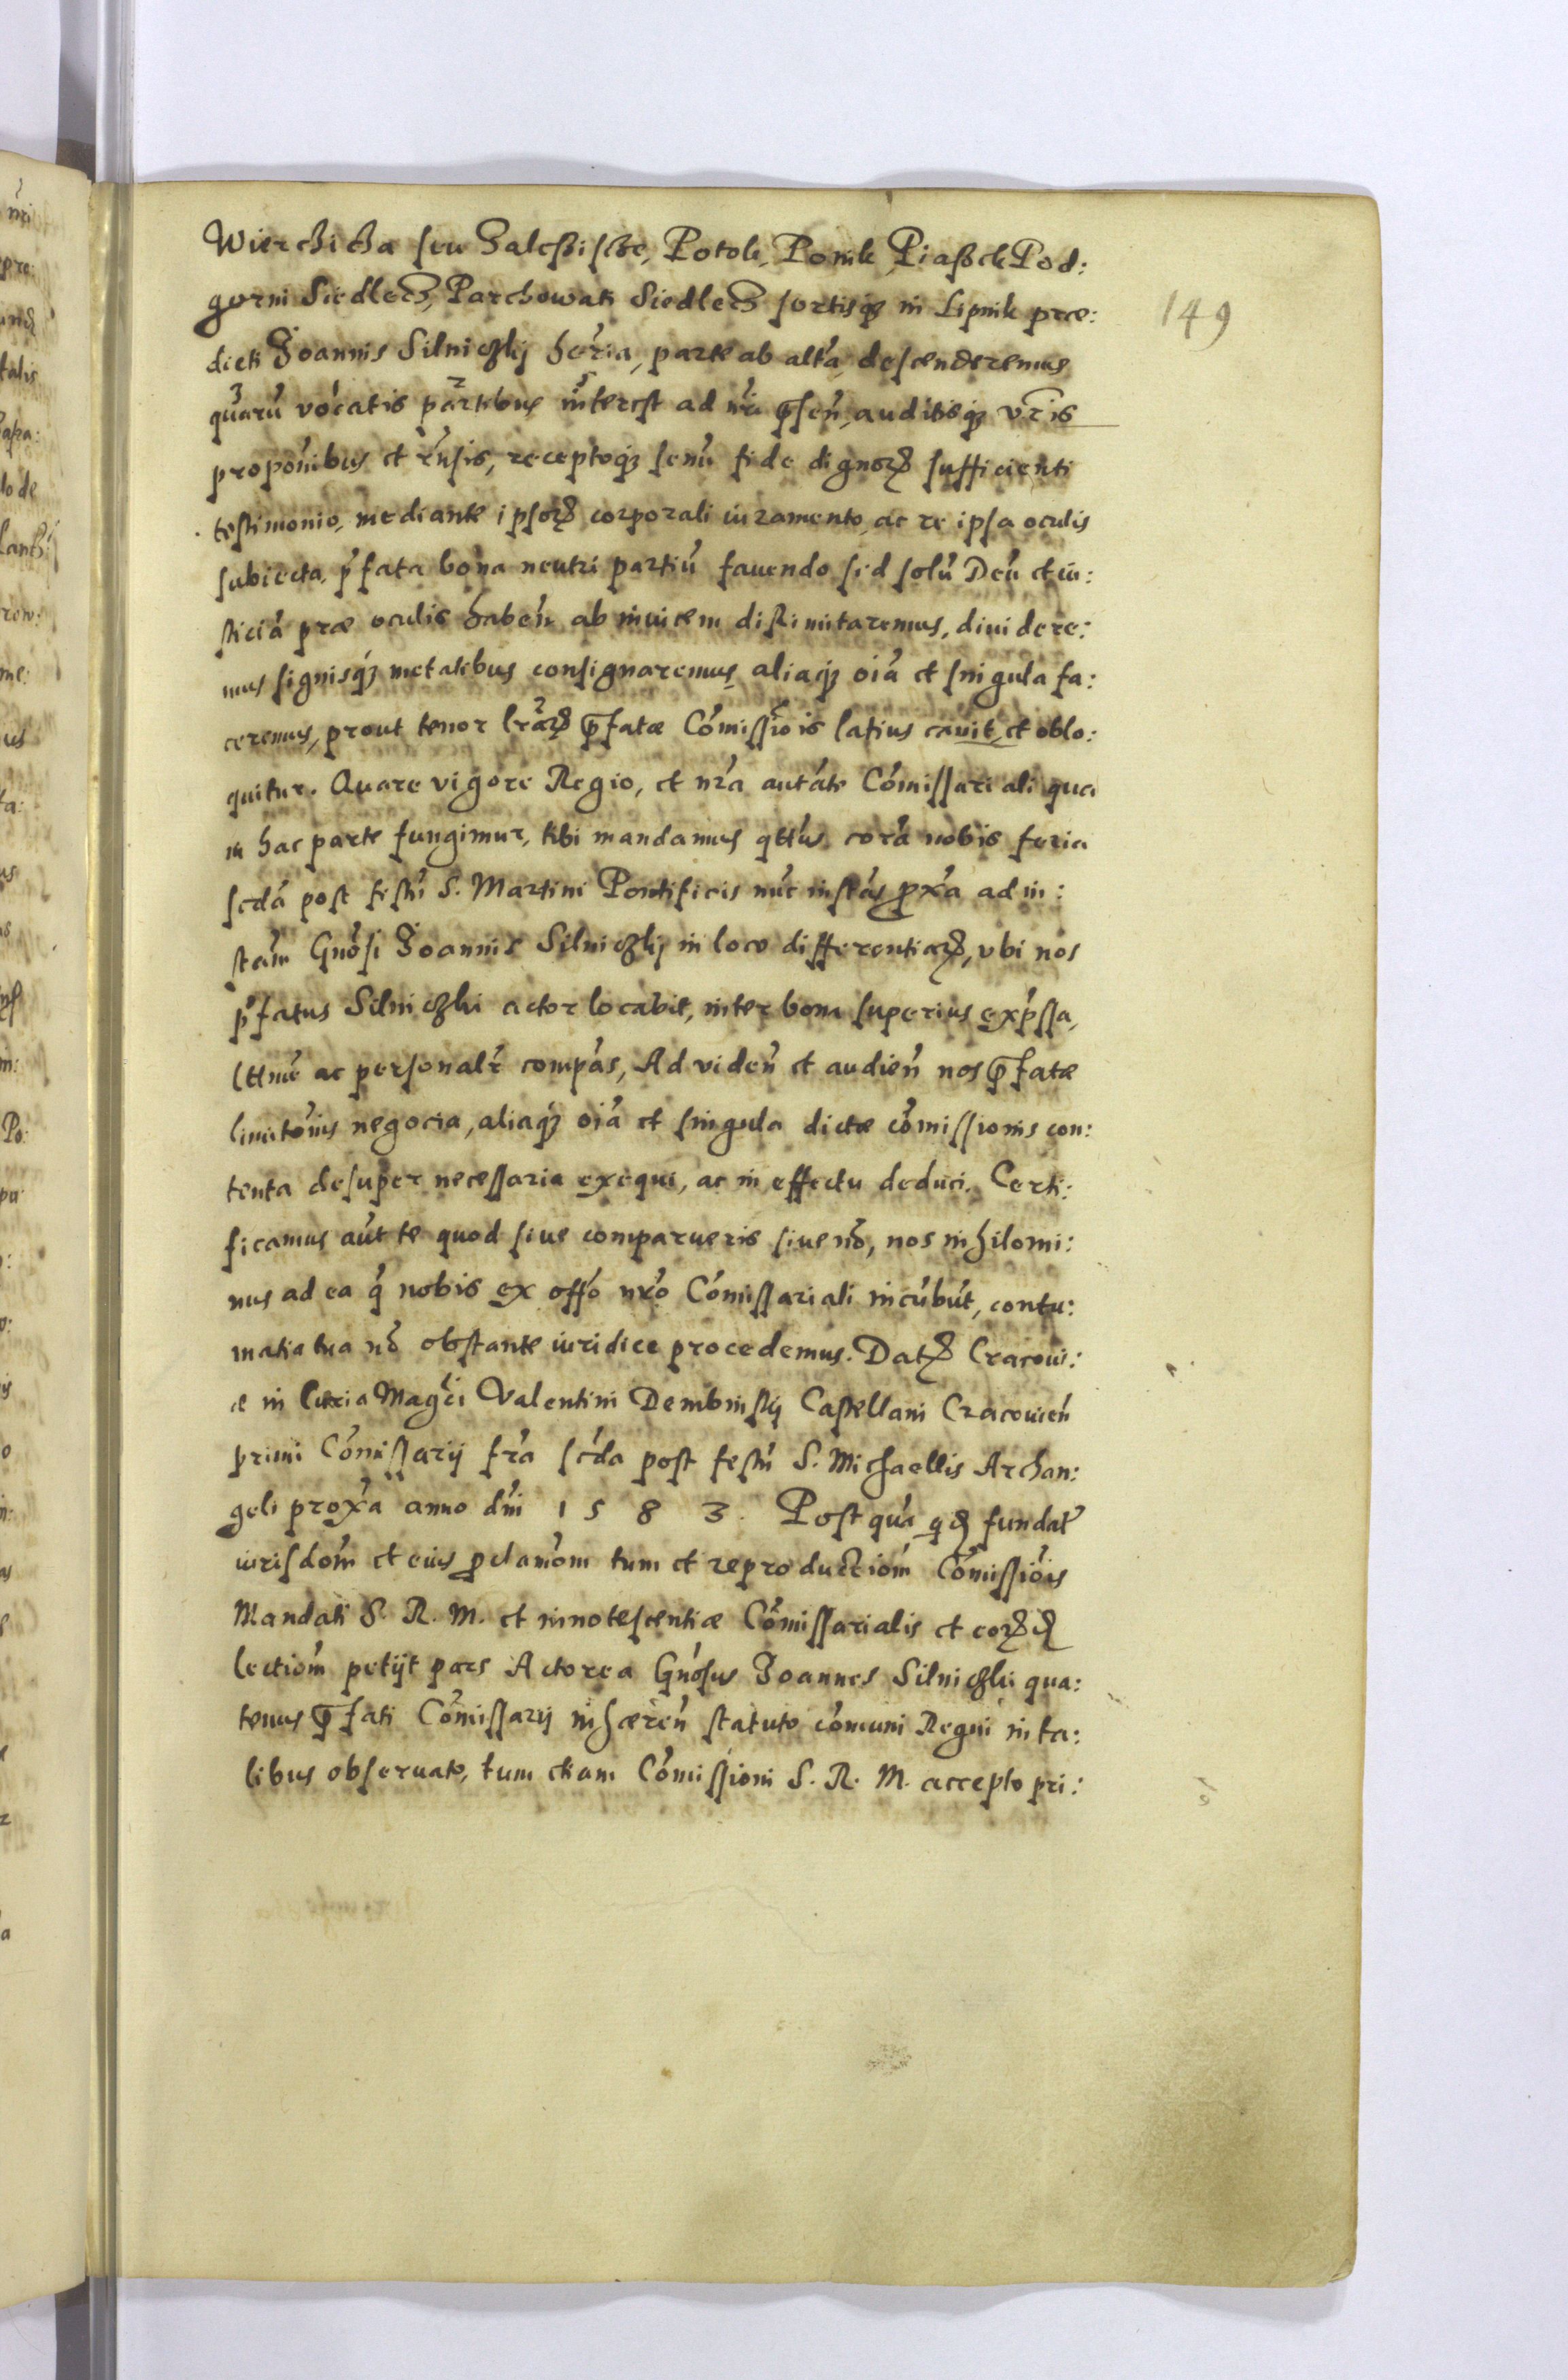 Wierchicha seu Zalesßiſcze, Potok, Ponik, Piaßek Pod:
gorni Siedlecz, Parchowati Siedlecz sortisq3 in Lipnik præ:
149
dicti Joannis Silniczkij hæria, parte ab altã descenderemus
quarũ vocatis partibus interest ad nrã pñſen, auditisq3 vtris
proponibus et rñsis, receptoq3 senũ fide dignorꝝ sufficienti
testimonio, mediante ipsorꝝ corporali iuramento, ac re ipsa oculis
subiecta, pfata bona neutri partiũ fauendo sed solũ Deũ et iu:
sticiã præ oculis habeñ ab inuicem dislimitaremus, diuidere:
mus signisq3 metalibus consignaremus, aliaq3 oiã et singula fa:
ceremus, prout tenor lrãrꝝ pfatæ Cõmissiois latius cauit, et oblo:
quitur. Quare vigore Regio, et nrã autãte Cõmissariali qua
in hac parte fungimur, tibi mandamus qttus corã nobis feria
scdã post festũ S. Martini Pontificis nũc instãs pxã ad in:
stam Gnõsi Joannis Silniczkij in loco differentiarꝝ, vbi nos
pfatus Silniczki actor locabit, inter bona superius expssa,
lttmẽ ac personalr compãs, Ad videñ et audieñ nos pfatæ
limitõnis negocia, aliaq3 oiã et singula dictæ cõmissionis con:
tenta desuper necessaria exequi, ac in effectu deduci. Certi:
ficamus aũt te quod siue comparueris siue nõ, nos nihilomi:
nus ad ea q̃ nobis ex offo nrõ Cõmissariali incũbũt, contu:
matia tua nõ obstante iuridice procedemus. Datꝝ Cracoui:
æ in Curia Magci Valentini Dembinskij Castellani Cracouieñ
primi Cõmissarij frã scda post festũ S. Michaellis Archan:
geli proxã anno dñi 1583. Post quã qd fundat
iurisdom et eius pclamom tum et reproductiom Cõmissiõis
Mandati S. R. M. et innotescentiæ Cõmissarialis et eorꝝd
lectiom petijt pars Actorea Gnõsus Joannes Silniczki qua:
tenus pfati Cõmissarij inhæreñ statuto cõmuni Regni in ta:
libus obseruato, tum etiam Cõmissioni S. R. M. accepto pri: